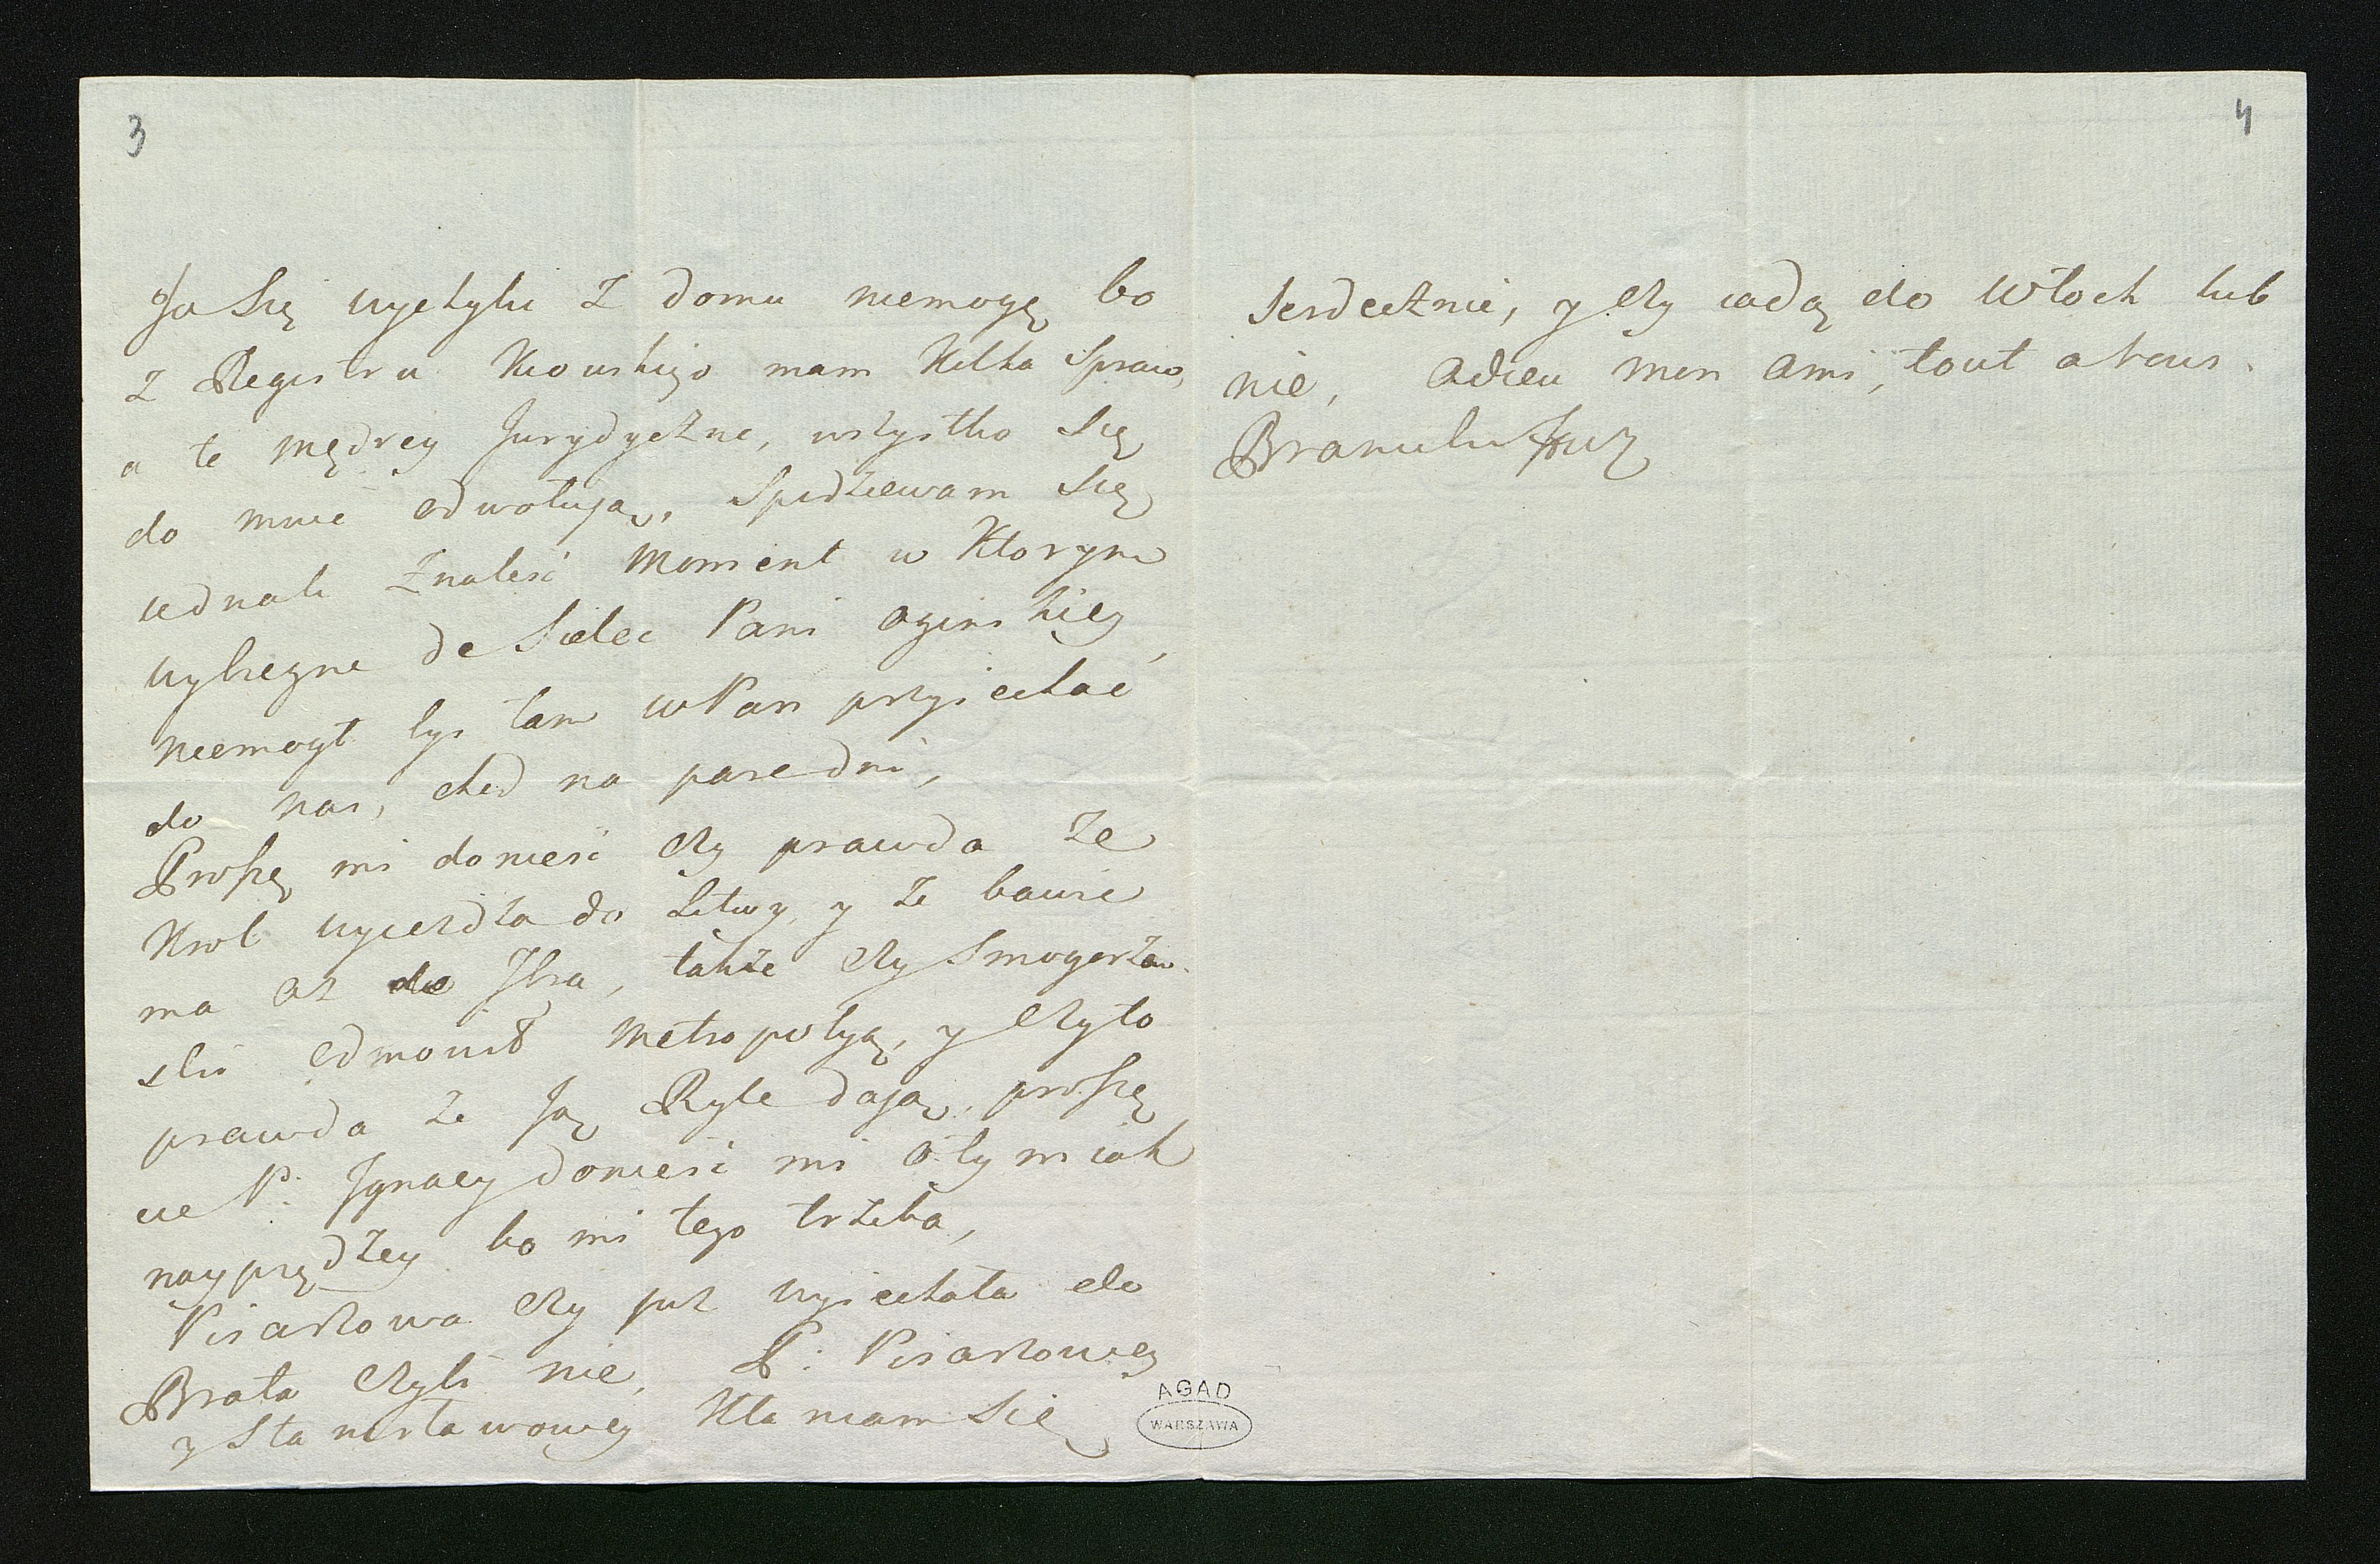 3
Ja Się wychylić z domu niemogę bo
z Regestru Kiowskiego mam Kilka Spraw,
a te mędrcy Jurydyczne, wszystko Się
do mnie odwołują, Spidziewam Się
iednak Znaleść Moment w Ktorym
wybiegne do Sielec Pani oginskiey,
niemogł bys tam WPan przyiechać
do nas, choć na pare dni,
Proszę mi donieść czy prawda że
Krol wyiezdza do Litwy y że bawić
ma aż do Jbra, także czy Smogorzew-
ski odmowił Metropolyą, y czy to
prawda że Ją Ryle dają, proszę
cie P: Jgnacy donieść mi o tym iak
nayprędzey bo mi tego trzeba,
Pisarzowa czy już wyiechała do
Brata czyli nie, P: Pisarzowey
y Stanisławowey Kłaniam Się
AGAD
WARSZAWA
4
Serdecznie, y czy iadą do Włoch lub
nie, adieu mon ami, tout a vous.